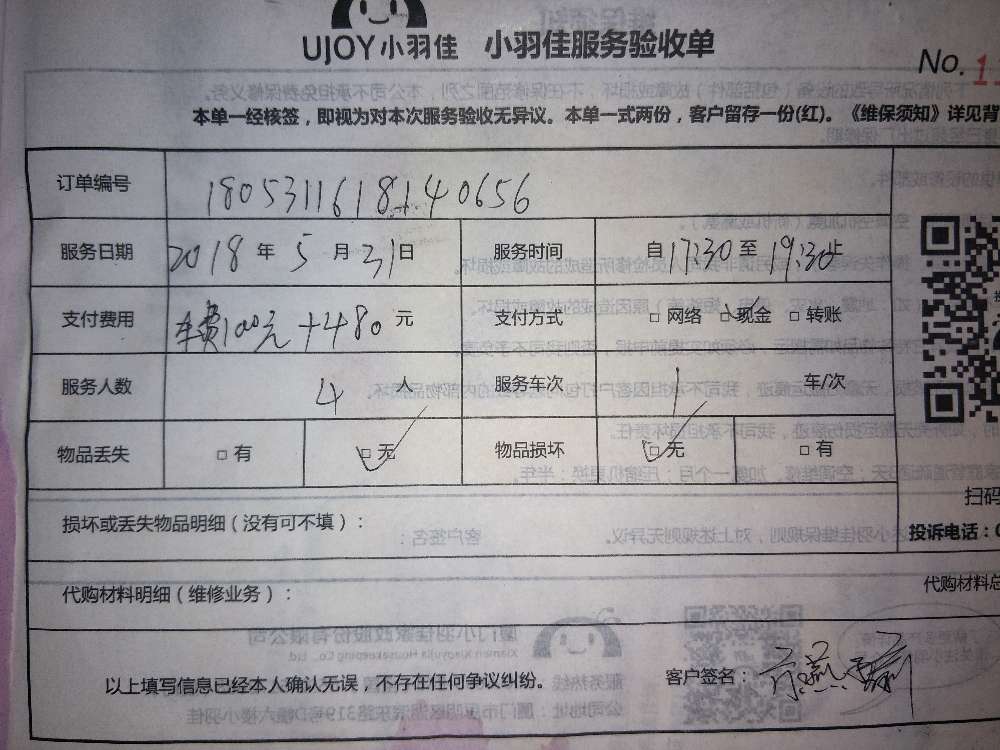 UJOY小羽佳 小羽佳服务验收单
No. 1
本单一经核签，即视为对本次服务验收无异议。本单一式两份，客户留存一份(红)。《维保须知》详见背
订单编号 1805311618140656
服务日期 2018 年 5 月 31 日 服务时间 自 17:30 至 19:30 止
支付费用 车费100元+480 元 支付方式 □ 网络 □ 现金 □ 转账
服务人数 4 人 服务车次 1 车/次
物品丢失 □ 有 □ 无 物品损坏 □ 无 □ 有
扫码
损坏或丢失物品明细（没有可不填）：
投诉电话：0
代购材料明细（维修业务）：
代购材料总
以上填写信息已经本人确认无误，不存在任何争议纠纷。 客户签名：